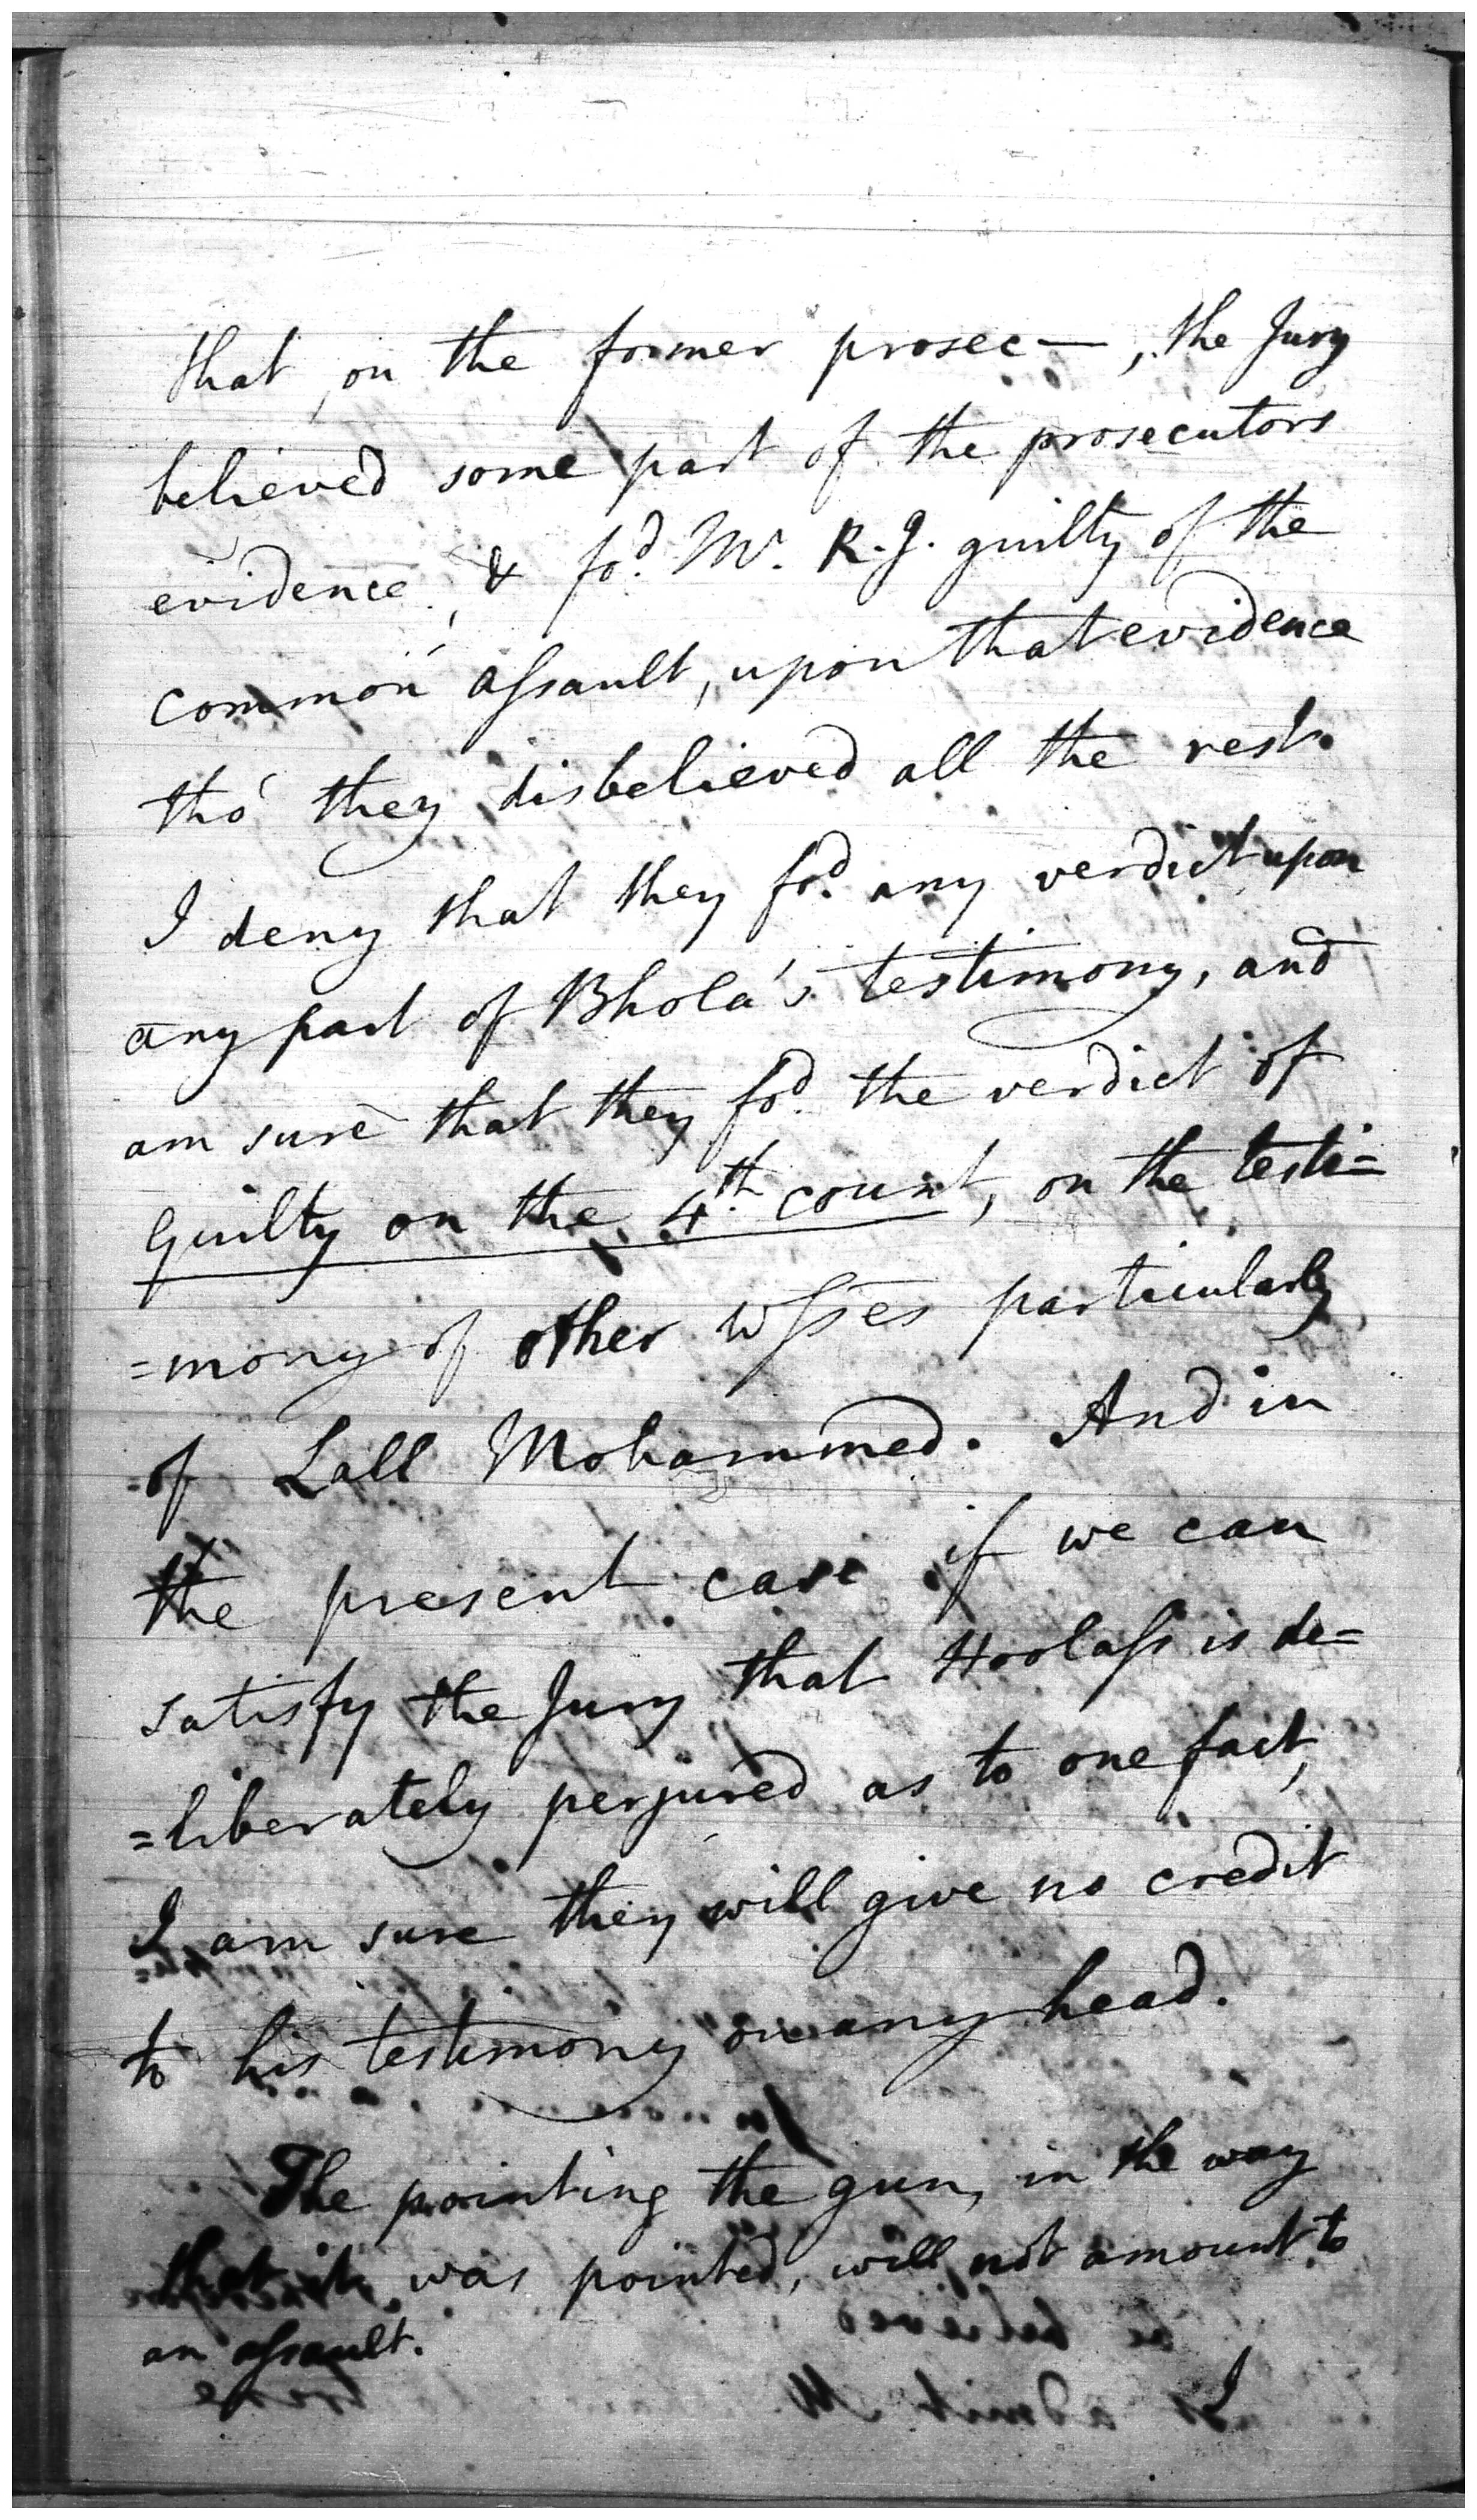 that, on the former prosec—, the Jury
believed some part of the prosecutors
evidence, & fo.d Mr. R. J. guilty of the
common assault, upon that evidence
tho' they disbelieved all the rest.
I deny that they fo.d any verdict upon
any part of Bhola's testimony, and
am sure that they fo.d the verdict of
guilty on the 4.th count, on the testi=
=mony of other wsses particularly
=of Lall Mohammed. And in
the present case if we can
satisfy the Jury that Hoolass is de=
=liberately perjured as to one fact,
I am sure they will give no credit
to his testimony on any head.
The pointing the gun, in the way
that it was pointed, will not amount to
an assault.
I